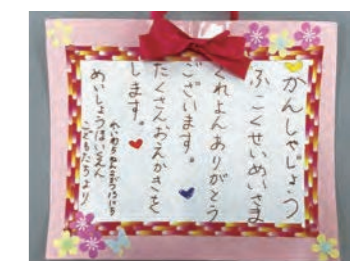 かんしゃじょう
ふこくせいめいさま
くれよんありがとう
ございます。
たくさんおえかきを
します。
めいしょうほいくえん
こどもたちより